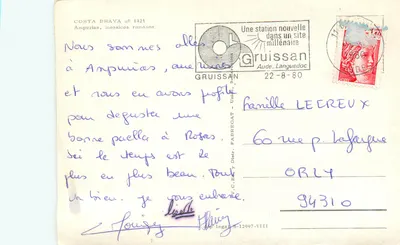 COSTA BRAVA
Nous sommes allés
à Ampurias, aux ruines
et nous en avons profité
pour deguster une
bonne paella à Rosas.
Ici le temps est de
plus en plus beau. Tout
va bien. Je vous embrasse.
Une station nouvelle
dans un site
millénaire
Gruissan
Aude. Languedoc
GRUISSAN 22-8-80
Famille LECREUX
60 rue P. Lafargue
ORLY
94310